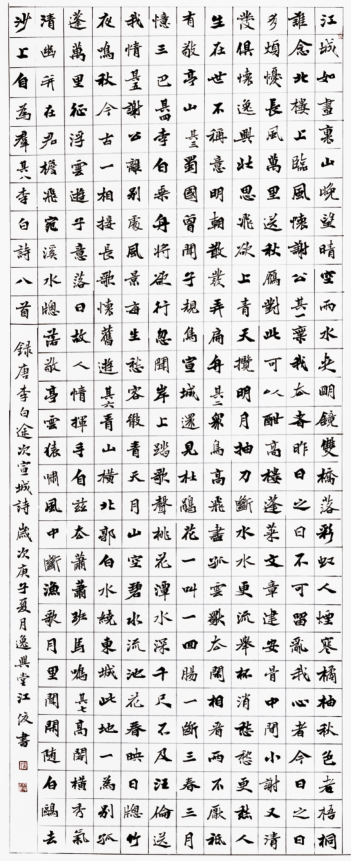 江城如畫裏山晚望晴空兩水夾明鏡雙橋落彩虹人煙寒橘柚秋色老梧桐
誰念北樓上臨風懷謝公其一棄我去者昨日之日不可留亂我心者今日之日
多煩憂長風萬里送秋雁對此可以酣高樓蓬萊文章建安骨中間小謝又清
發俱懷逸興壯思飛欲上青天攬明月抽刀斷水水更流舉杯消愁愁更愁人
生在世不稱意明朝散髮弄扁舟其二眾鳥高飛盡孤雲獨去閑相看兩不厭祗
有敬亭山其三蜀國曾聞子規鳥宣城還見杜鵑花一叫一回腸一斷三春三月
憶三巴其四李白乘舟將欲行忽聞岸上踏歌聲桃花潭水深千尺不及汪倫送
我情其五謝公離別處風景每生愁客散青天月山空碧水流池花春映日窗竹
夜鳴秋今古一相接長歌懷舊遊其六青山橫北郭白水繞東城此地一為別孤
蓬萬里征浮雲遊子意落日故人情揮手自茲去蕭蕭班馬鳴其七高閣橫秀氣
清幽并在君檐飛宛溪水窗落敬亭雲猿嘯風中斷漁歌月里聞閑隨白鷗去
沙上自為群其八李白詩八首
錄唐李白途次宣城詩歲次庚子夏月逸興堂江俊書